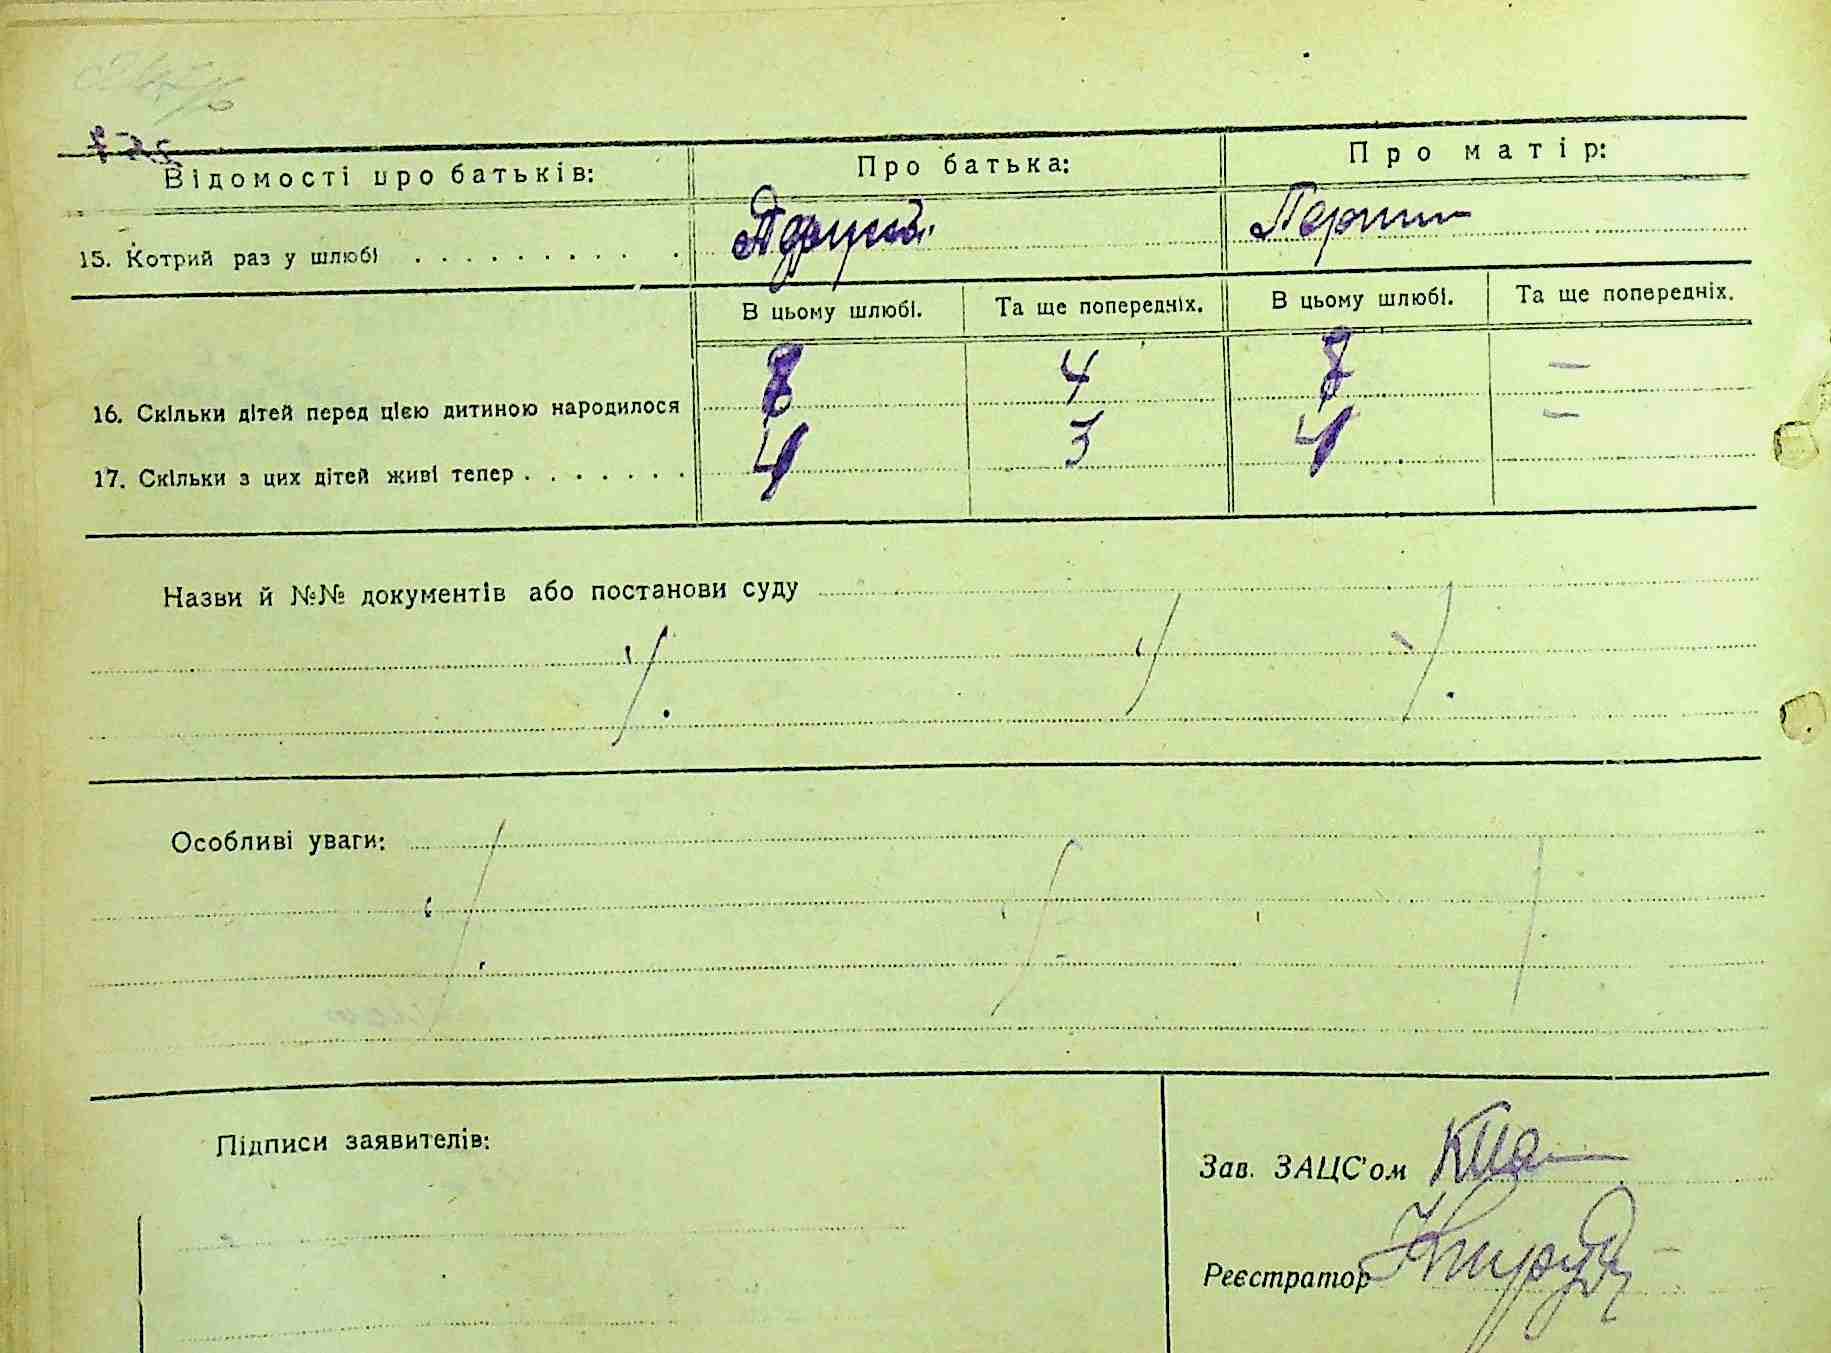 Відомості про батьків:
Про батька:
Про матір:
15. Котрий раз у шлюбі
другий
Перший
В цьому шлюбі.
Та ще попередніх.
В цьому шлюбі.
Та ще попередніх.
16. Скільки дітей перед цією дитиною народилося
4
—
17. Скільки з цих дітей живі тепер
4
3
4
—
Назви й №№ документів або постанови суду
Особливі уваги:
Підписи заявителів:
Зав. ЗАЦС'ом
Реєстратор